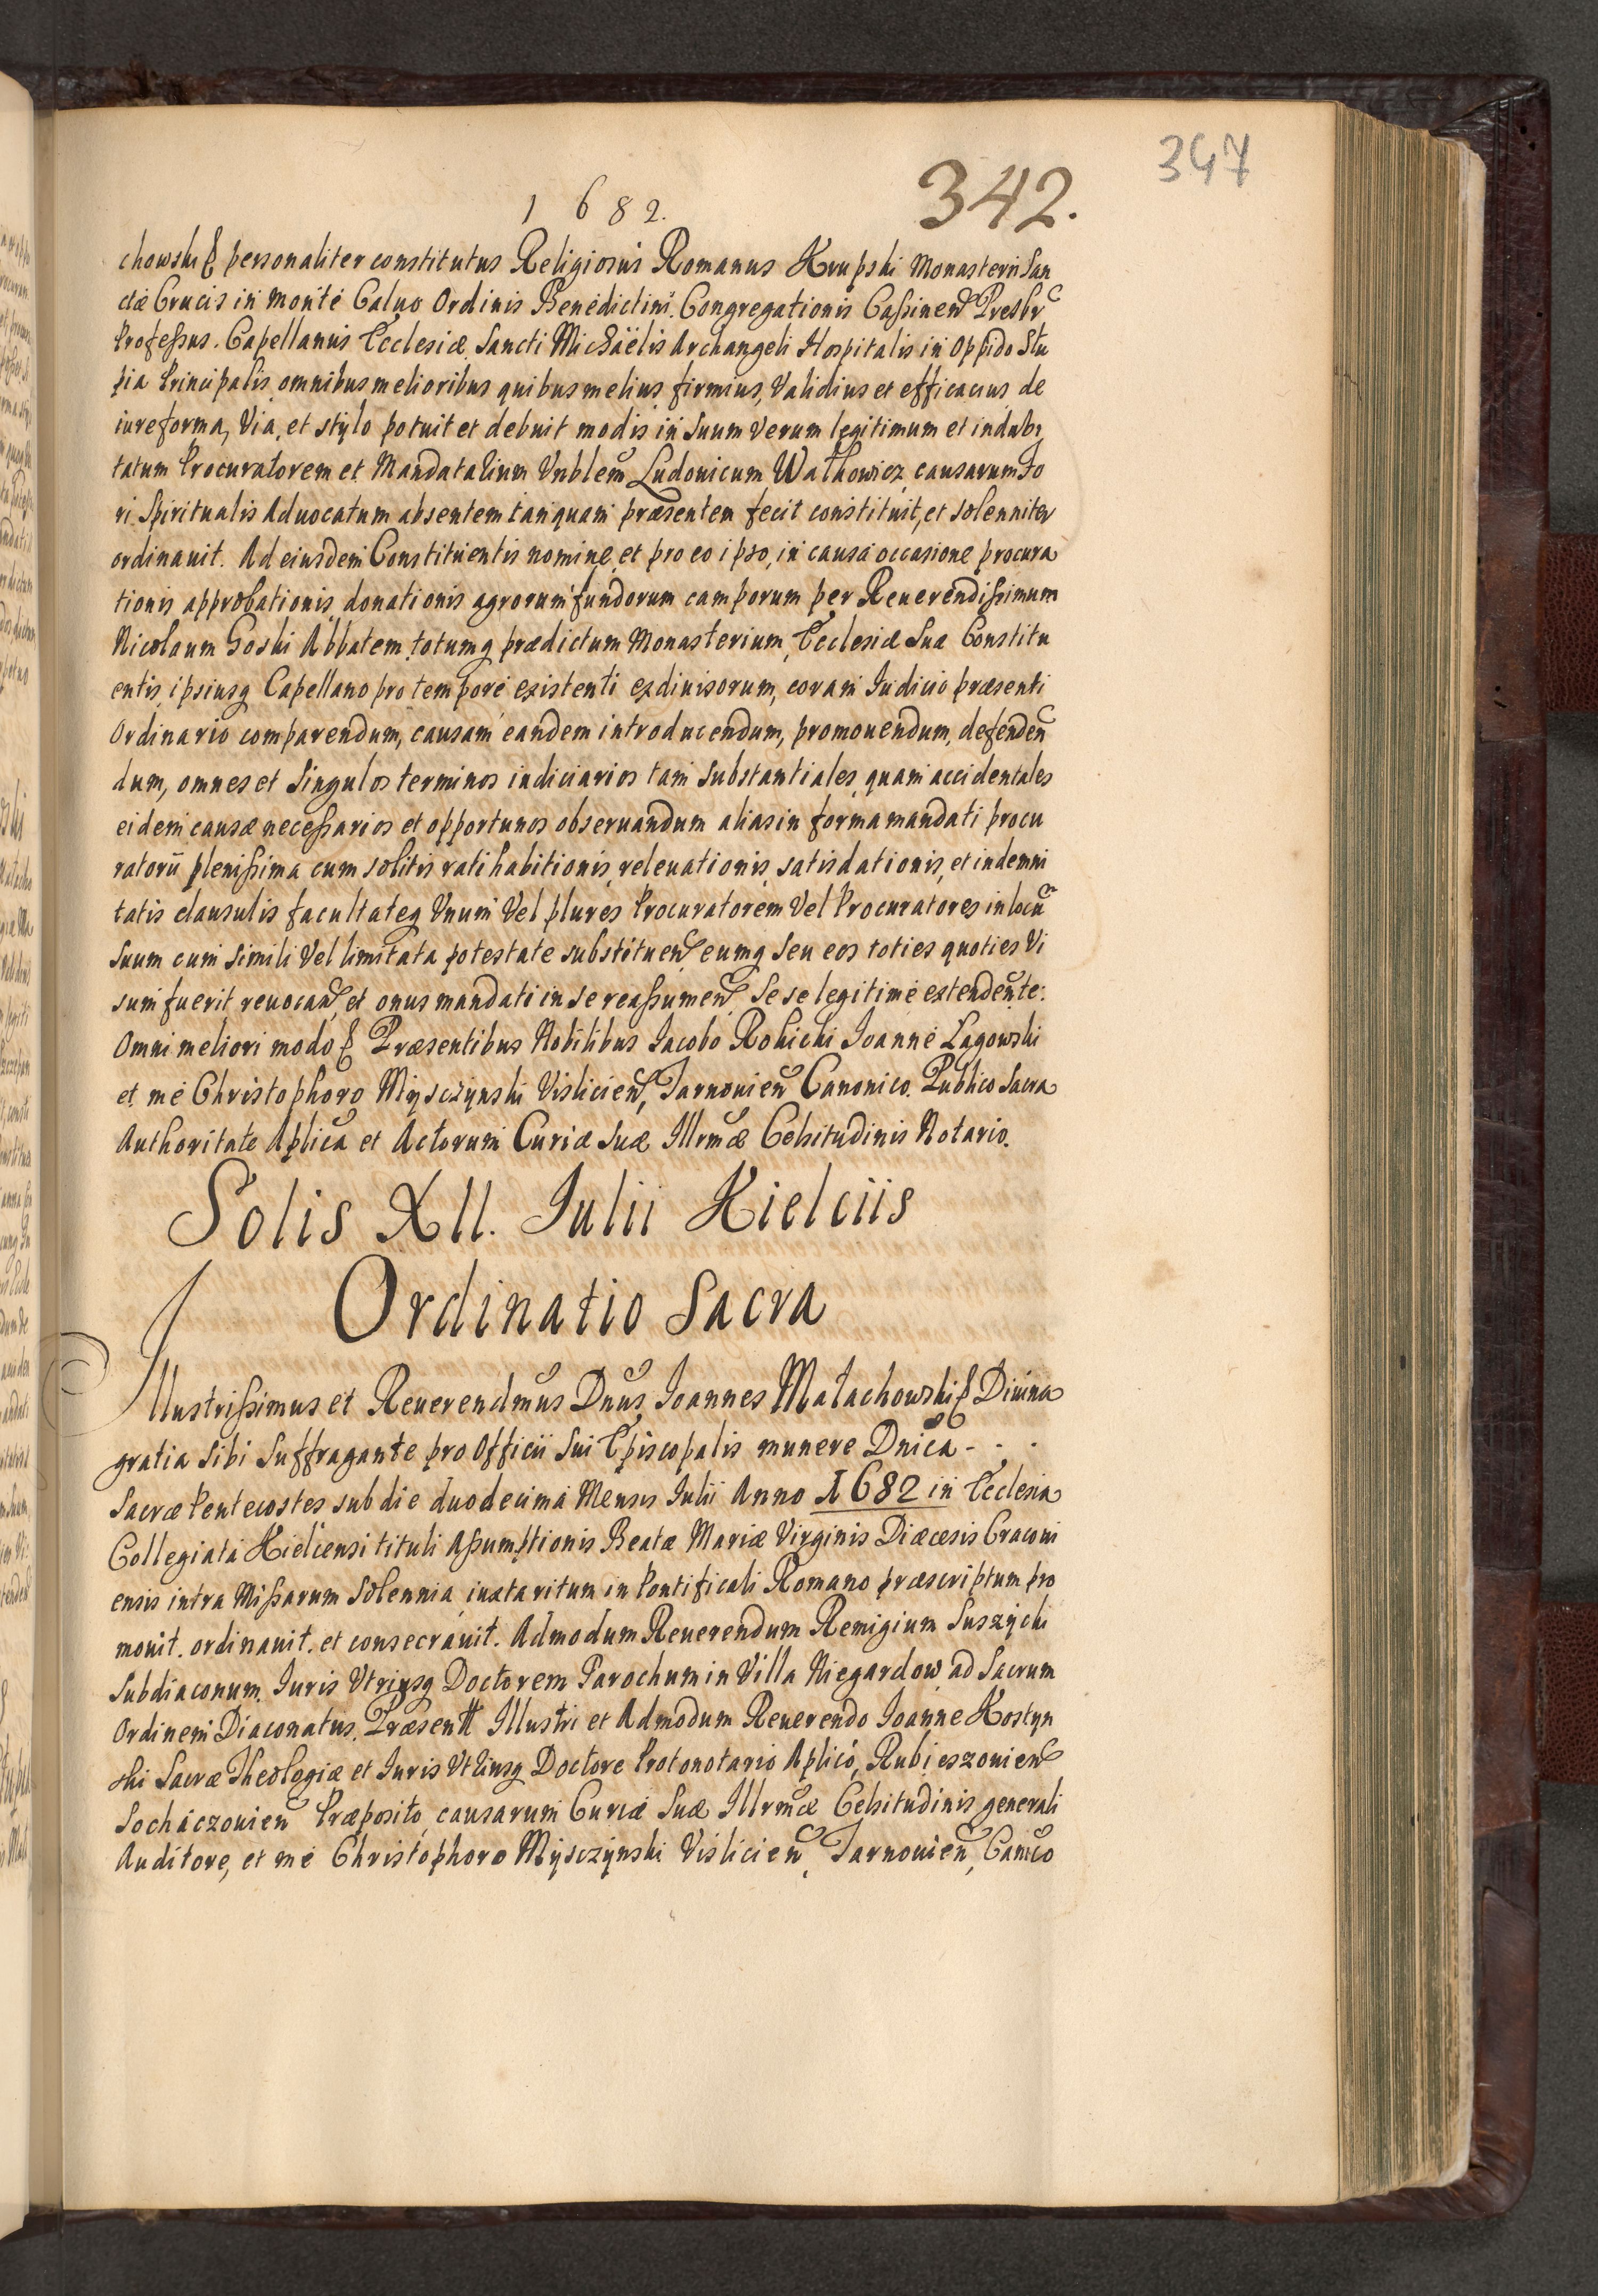 347
1682.
342.
chowski personaliter constitutus Religiosus Romanus Krupski Monasterii San
ctæ Crucis in Monte Caluo Ordinis Benedictini Congregationis Cassinen Presbr
Professus. Capellanus Ecclesiæ Sancti Michäelis Archangeli Hospitalis in Oppido Slu
pia Principalis omnibus melioribus quibus melius, firmius, Validius et efficacius de
iure forma, Via, et stylo potuit et debuit modis in Suum Verum legitimum et indubi
tatum Procuratorem et Mandatarium Vnblem Ludouicum Walkowicz causarum Fo
ri Spiritualis Aduocatum absentem tanquam præsentem fecit constituit, et solenniter
ordinauit. Ad eiusdem Constituentis nomine, et pro eo ipso, in causa occasione procura
tionis approbationis donationis agrorum fundorum camporum per Reuerendissimum
Nicolaum Goski Abbatem totumq prædictum Monasterium, Ecclesiæ Suæ Constitu
entis, ipsiusq Capellano pro tempore existenti exdiuisorum, coram Iudicio præsenti
Ordinario comparendum, causam eandem introducendum, promouendum, defenden
dum, omnes et Singulos terminos iudiciarios tam Substantiales quam accidentales
eidem causæ necessarios et opportunos obseruandum alias in forma mandati procu
ratorii plenissima cum solitis ratihabitionis, releuationis, satisdationis, et indemni
tatis clausulis facultateq Vnum Vel plures Procuratorem Vel Procuratores in locu
Suum cum Simili Vel limitata potestate substituen eumq Seu eos toties quoties Vi
sum fuerit reuocan, et onus mandati in se reassumen, Se se legitime extendente:
Omni meliori modo Præsentibus Nobilibus Iacobo Rokicki Ioanne Lagowski
et me Christophoro Mysczynski Vislicien, Tarnouien Canonico. Publico Sacra
Authoritate Aplica et Actorum Curiæ Suæ Illrmæ Celsitudinis Notario.
Solis XII. Iulii Kielciis
Ordinatio Sacra
Illustrissimus et Reuerendmus Dnus Ioannes Małachowski Diuina
gratia Sibi Suffragante pro Officii Sui Episcopalis munere Dnica - . .
Sacræ Pentecostes sub die duodecima Mensis Iulii Anno 1682 in Ecclesia
Collegiata Kielicensi tituli Assumptionis Beatæ Mariæ Virginis Diæcesis Cracoui
ensis intra Missarum Solennia, iuxta ritum in Pontificali Romano præscriptum pro
mouit. ordinauit. et consecrauit. Admodum Reuerendum Remigium Suszycki
Subdiaconum, Iuris Vtriusq Doctorem Parochum in Villa Niegardow ad Sacrum
Ordinem Diaconatus. Præsentt Illustri et Admodum Reuerendo Ioanne Kostyn
ski Sacræ Theologiæ et Iuris Vtriusq Doctore Protonotario Aplico, Rubieszouien
Sochaczouien Præposito, causarum Curiæ Suæ Illrmæ Celsitudinis generali
Auditore, et me Christophoro Mysczynski Vislicien, Tarnouien, Canico